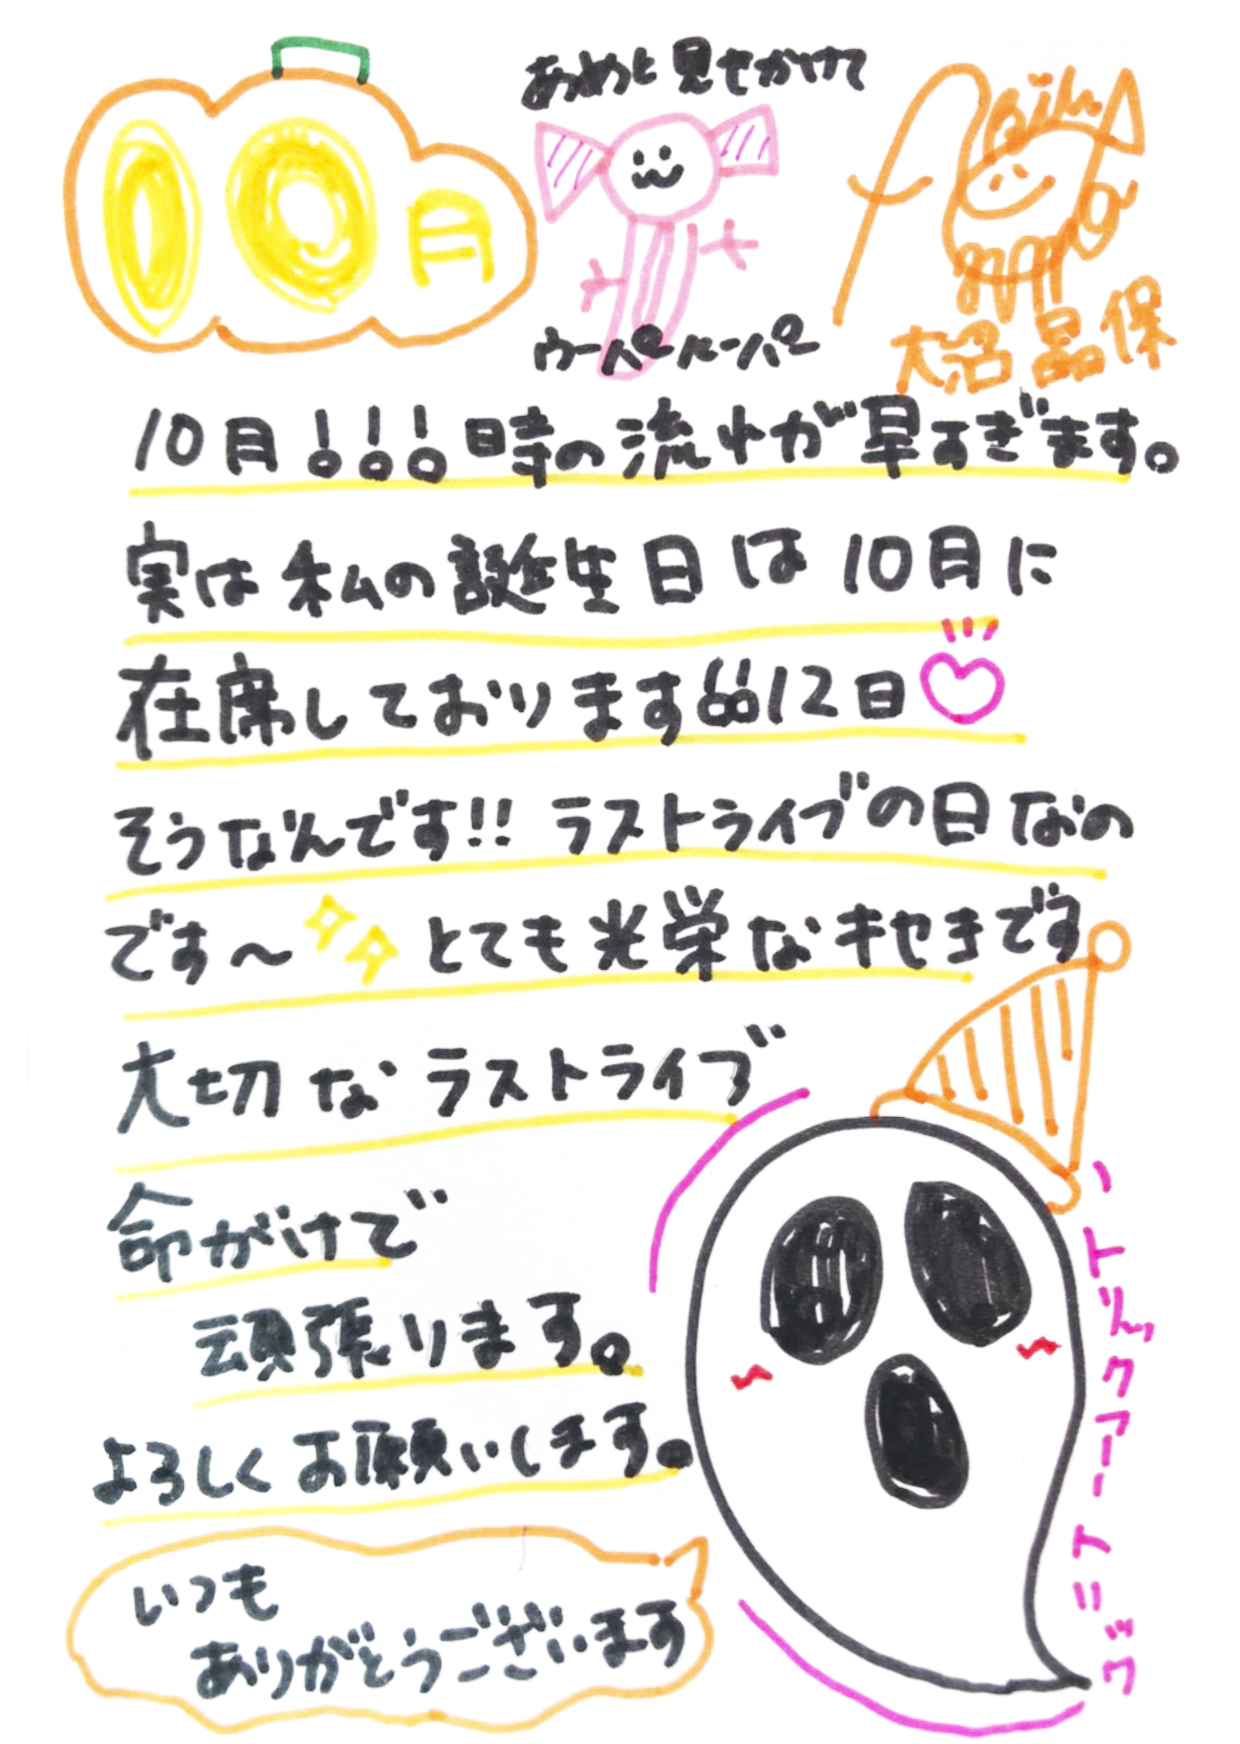 10月
あめと見せかけて
ウーパールーパー
大沼晶保
10月!!!時の流れが早すぎます。
実は私の誕生日は10月に
在席しております!!12日♡
そうなんです!!ラストライブの日なの
です〜とても光栄なキセキです
大切なラストライブ
命がけで
頑張ります。
よろしくお願いします。
いつも
ありがとうございます
トリックアートニック